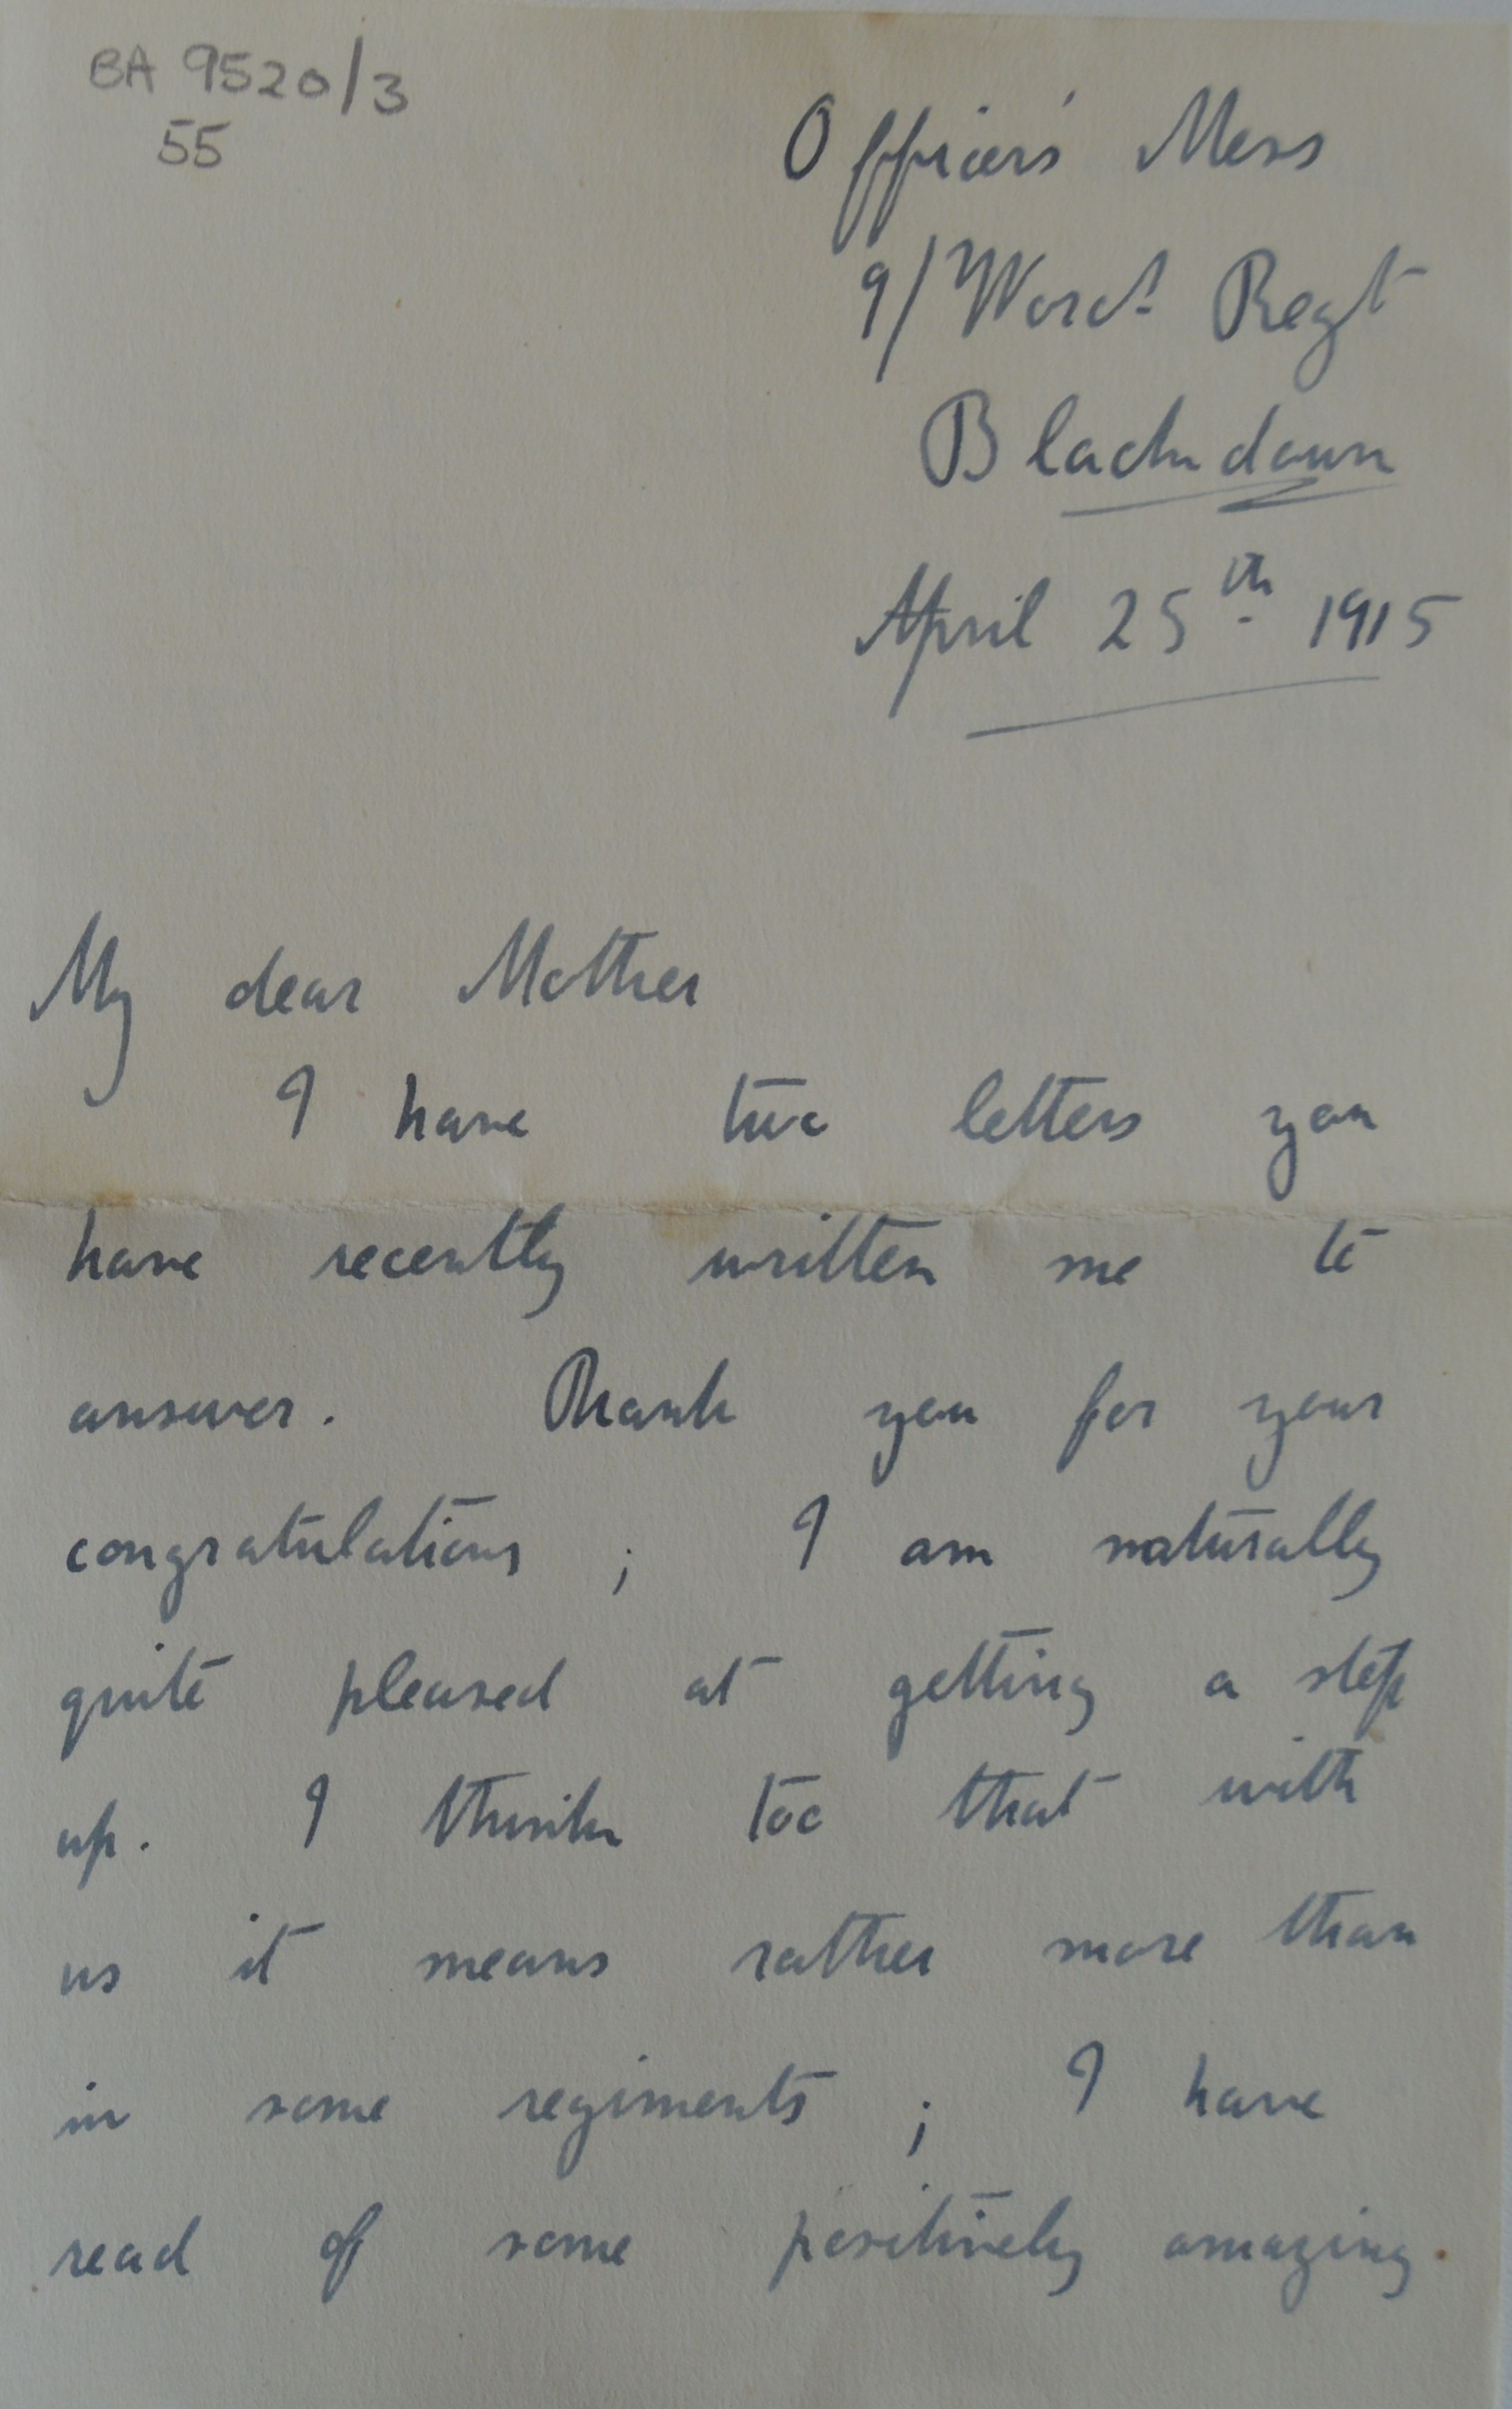 BA 9520/3
55
Officers' Mess
9/Worc. Regt
Blackdown
April 25th 1915
My dear Mother
I have two letters you
have recently written me to
answer. Thank you for your
congratulations ; I am naturally
quite pleased at getting a step
up. I think too that with
us it means rather more than
in some regiments ; I have
read of some positively amazing